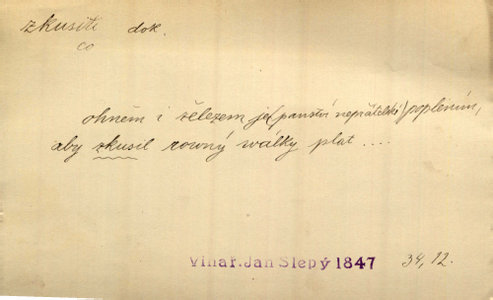 zkusiti dok.
co
ohněm i železem je (panství nepřátelské) poplením,
aby zkusil rowný wálky plat ....
Vinař. Jan Slepý 1847 34, 12.